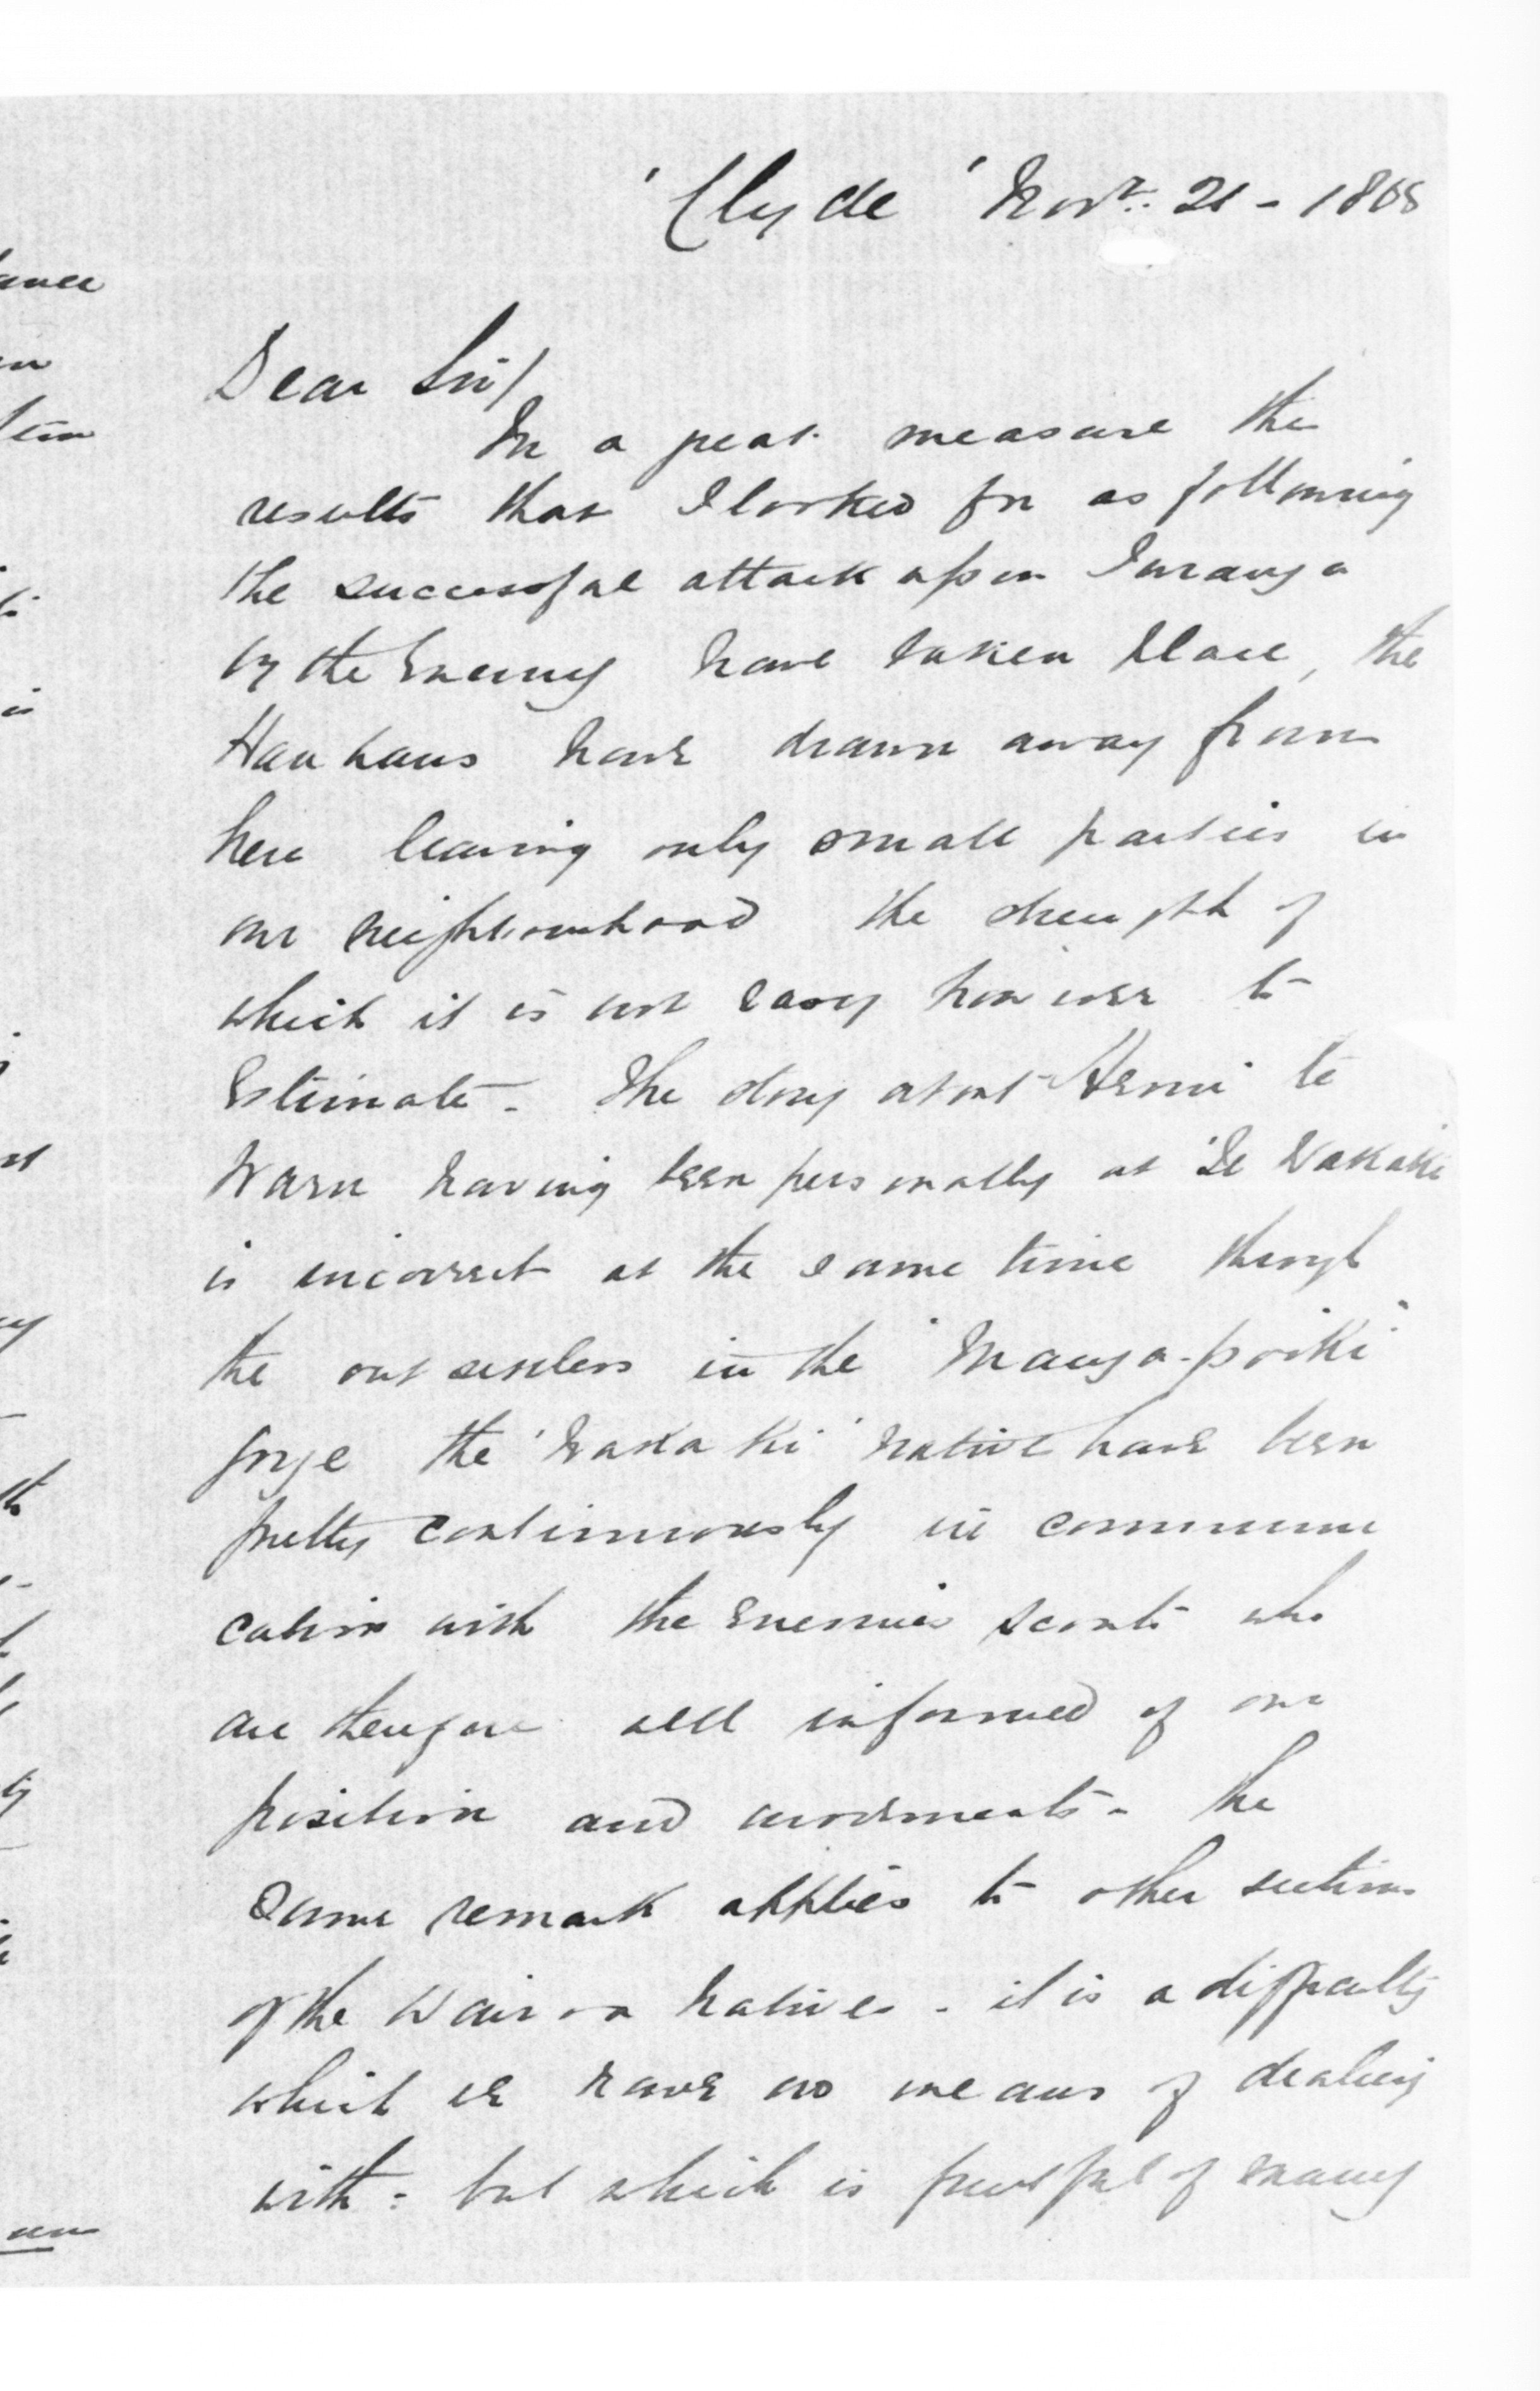 'Clyde' Novr. 21 - 1868
Dear Sir/
In a great measure the
results that I looked for as following
the successful attack upon Turanga
by the Enemy have taken place, the
Hauhaus have drawn away from
here leaving only small parties in
our neighbourhood the strength of
which it is not easy however to
Estimate - The story about Henri te
having been personally at 'Te Wakaki
is incorrect at the same time through
the outsettlers in the "Manga-poiki"
gorge the 'Wakaki' native have been
pretty continuously in communi
cation with the Enemies scouts who
are therefore well informed of our
position and movements - The
same remark applies to other sections
of the Wairoa natives - it is a difficulty
which we have no means of dealing
with - but which is fruitful of many